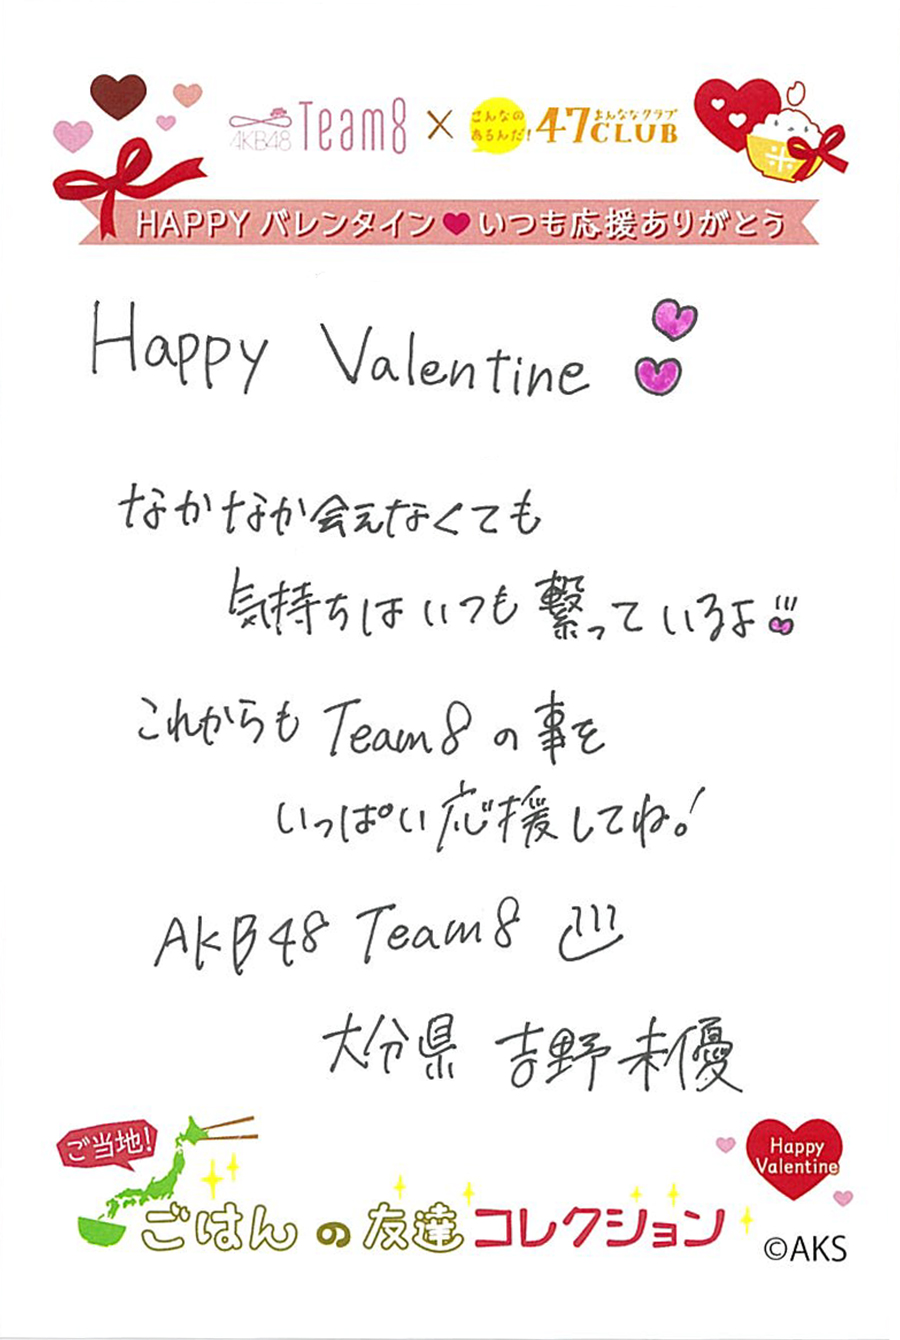 AKB48 Team8 × こんなの あるんだ! 47CLUB よんななクラブ
HAPPY バレンタイン♥いつも応援ありがとう
Happy Valentine
なかなか会えなくても
気持ちはいつも繋っているよ
これからもTeam8の事を
いっぱい応援してね!
AKB48 Team8
大分県 吉野未優
ご当地!
ごはんの友達コレクション
Happy
Valentine
©AKS